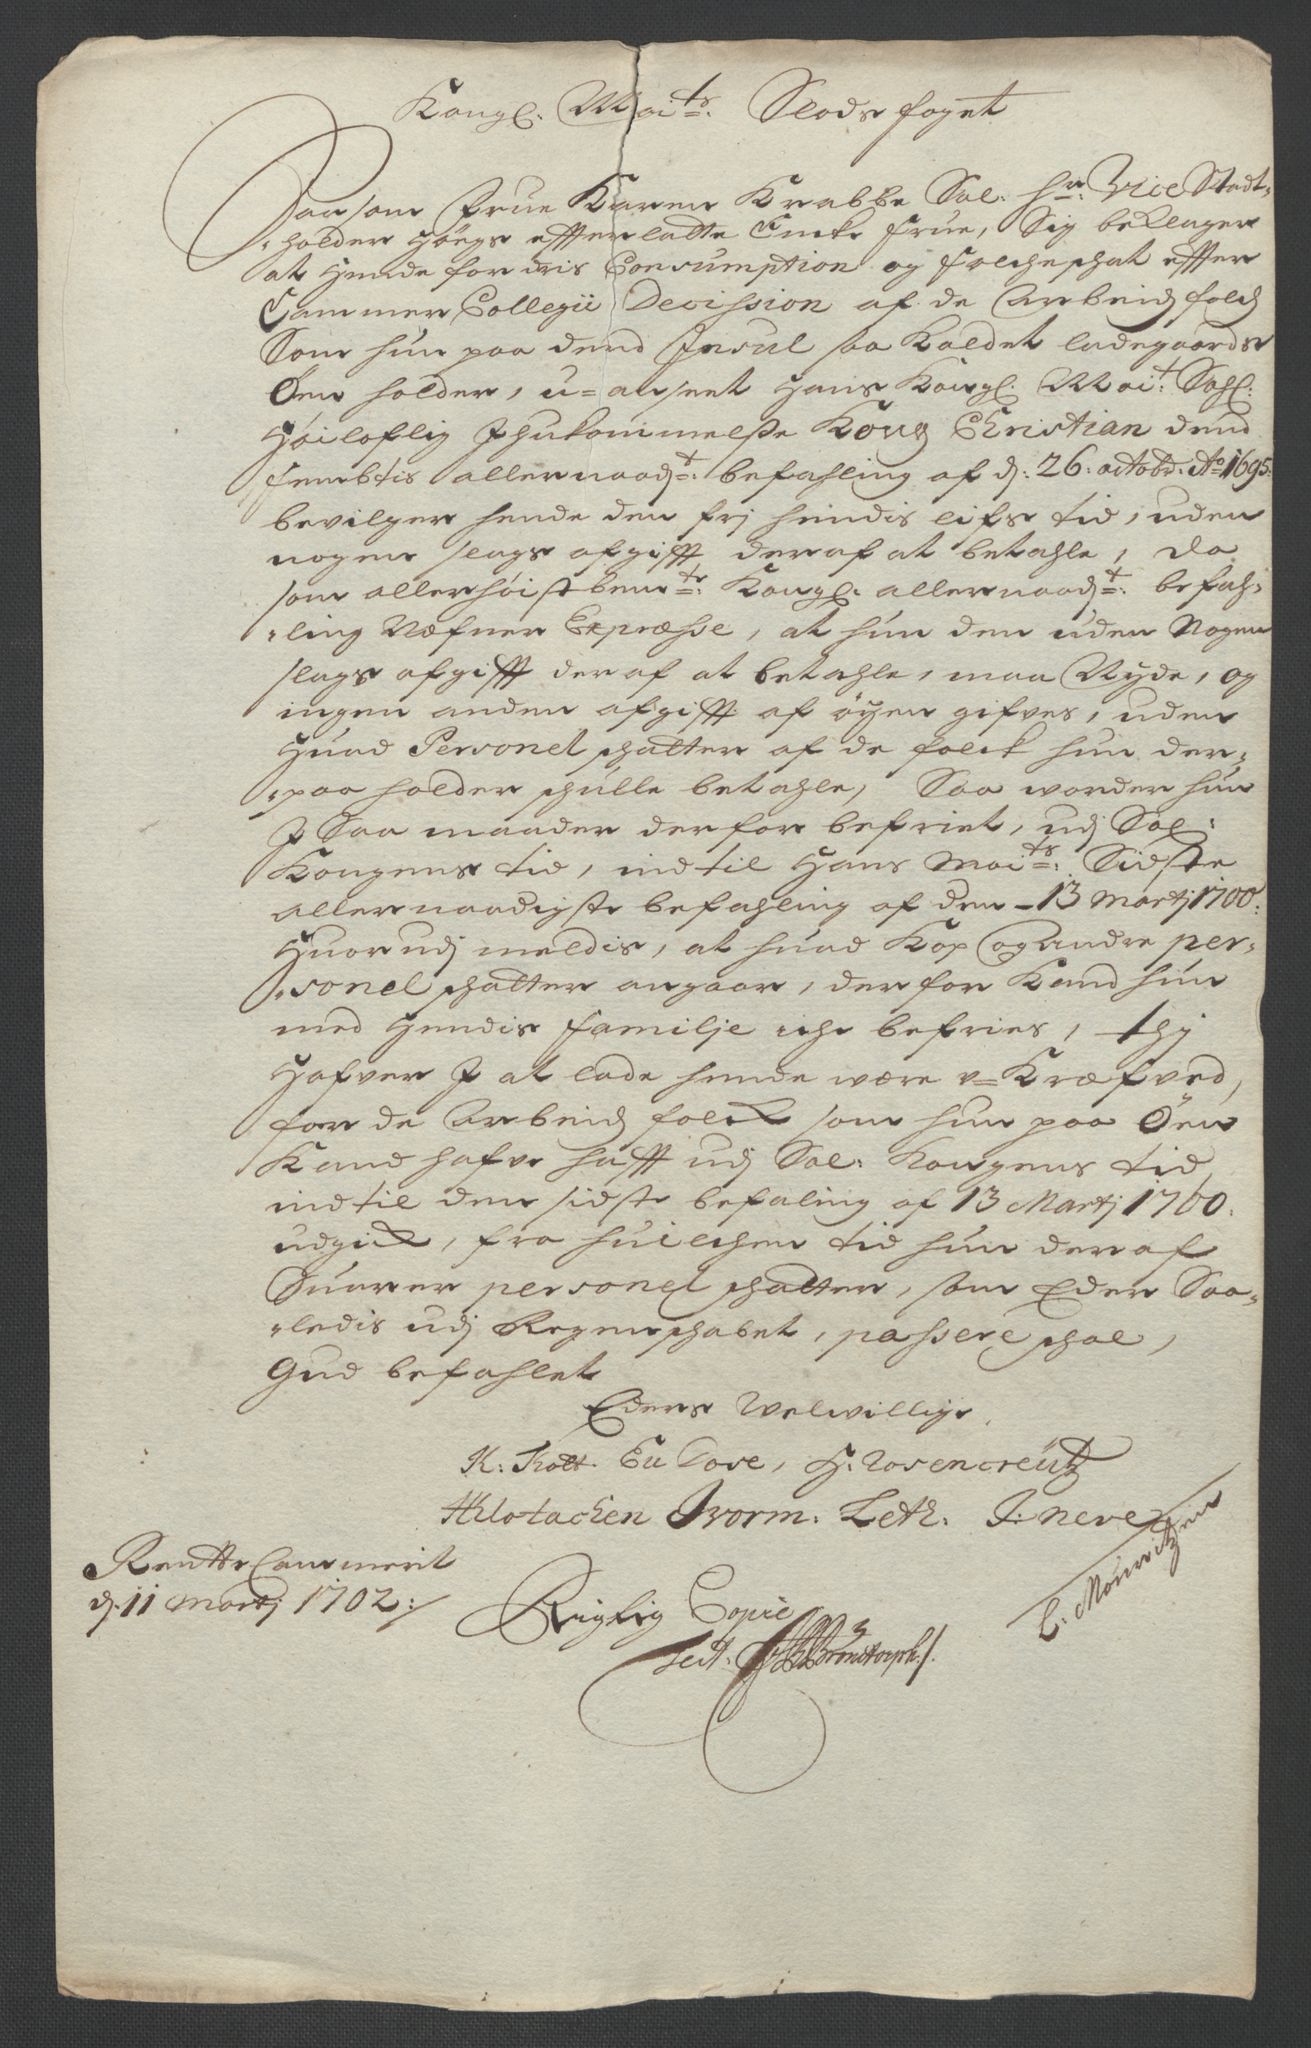 Kongl. Mai.ts Slods foget
Saa som Frue Karen Krabbe Sal. Hr. Vice Stadt-
holder Höegs effterladte Encke Frue, Sig beklager
at hende fordris Consumption og Folcheschat effter
Cammer Collegii Decission af de Arbeids folch
Som hun paa dend Insul saa kaldet ladegaards
Øen holder, u-anseet Hans Kongl. Mai.t Sahl.
Høiloflig Ihukommelsse Kong Christian dend
femtis allernaad.t befahling af d. 26. octobr. Ao 1695.
bevilger hende den frj hendis lifs tid, uden
nogen slags afgifft deraf at betahle, da
som allerhøistbem.te Kongl. allernaad.t befah-
ling Næfner Expræsse, at hun den uden Nogen
slags afgifft deraf at betahle, maa Nyde, og
ingen anden afgifft af øyen gifves, uden
Huad Personel schatter af de folck hun der-
paa holder schulle betahle, Saa worder hun
I Saa maader derfor befriet, udj Sal.
Kongens tid, indtil Hans Mai.ts Sidste
allernaadigste befahling af den 13 Martj 1700.
Huorudj meldis, at huad Kop og Andre per-
sonel schatter angaar, derfor Kand hun
med Hendis familje iche befries, thj
Hafver I at lade hende være u-Kræfved,
for de Arbeids folck som hun paa Øen
Kand hafve hafft udj Sal. Kongens tid
indtil den sidste befaling af 13 Martj 1700.
udgick, fra huilchen tid hun deraf
Suarer personel schatter, som Eder Saa-
ledis udj Regenschabet, passere schal,
Gud befahlet
Eders Velwillige
H. Rosencreütz
Worm. Leth.
C. Mouritzen
Rentte Cammerit
d. 11 Martj 1702:/
Rigtig Copie